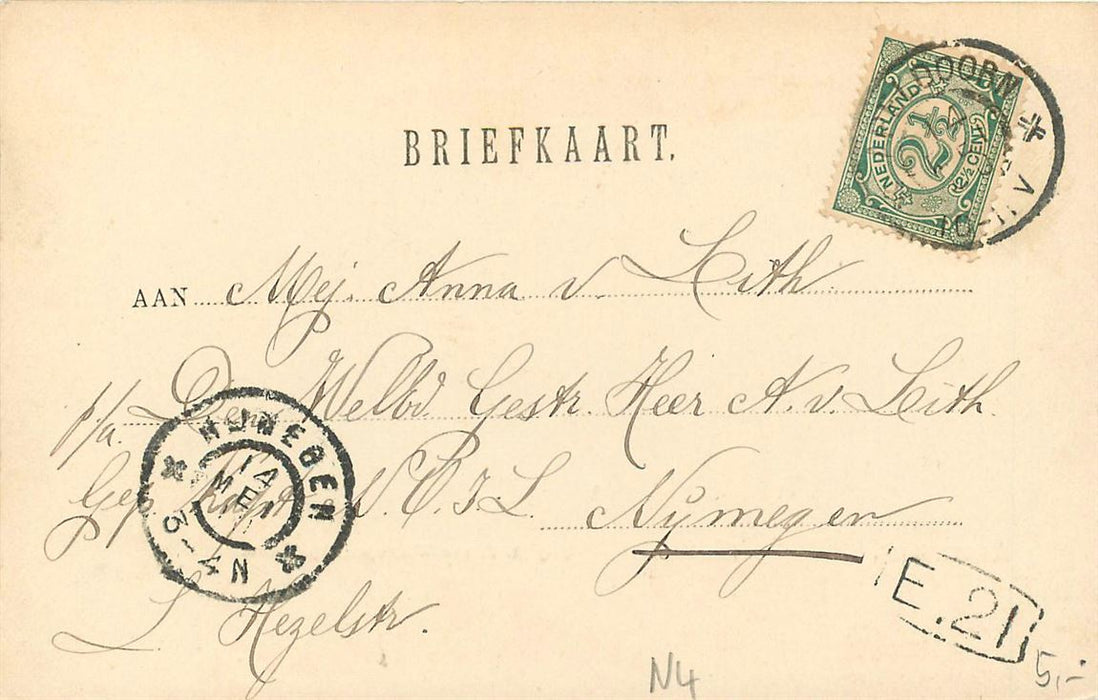 BRIEFKAART.
HOORN
10-11 V
NEDERLAND
2½
2½ CENT
AAN Mej. Anna v. Lith
p/a. Den Welbd. Gestr. Heer A. v. Lith
Gep. Kapt. N.O.I.L. Nijmegen
L. Hezelstr.
NIJMEGEN
14 MEI
3-4 N
E.21
N4
5,-